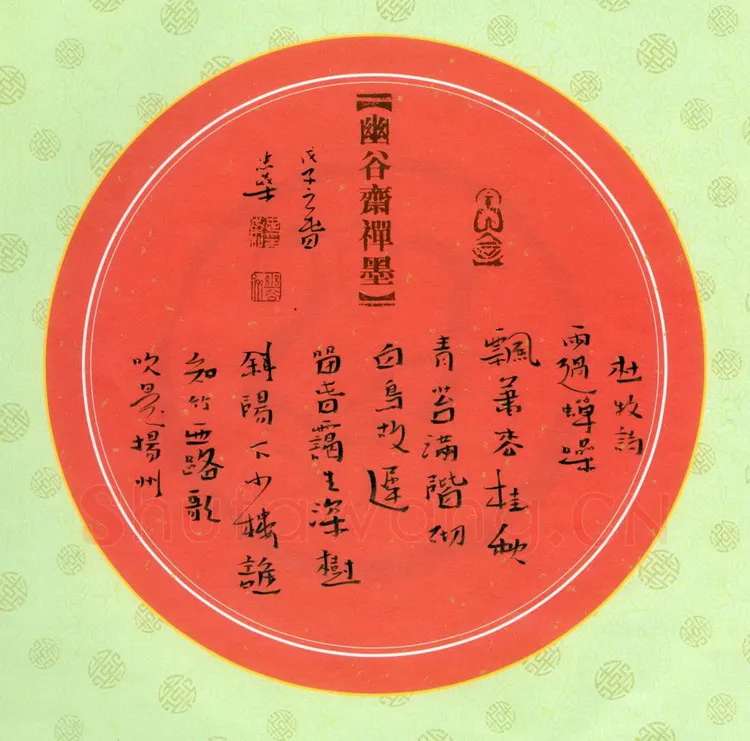 【幽谷齋禪墨】
杜牧詩
雨過蟬噪
飄蕭枩桂秋
青苔滿階砌
白鳥故遲
留靄生深樹
斜陽下小樓誰
知竹西路歌
吹是揚州
戊子之春
Shufawang.CN